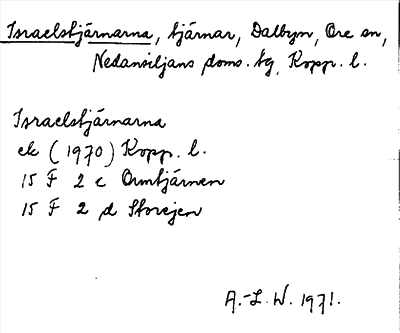 Israelstjärnarna, tjärnar, Dalbyn, Ore sn,
Nedansiljans doms. tg, Kopp. l.
Israelstjärnarna
ek (1970) Kopp. l.
15 F 2 c Ormtjärnen
15 F 2 d Storejen
A.-L. W. 1971.